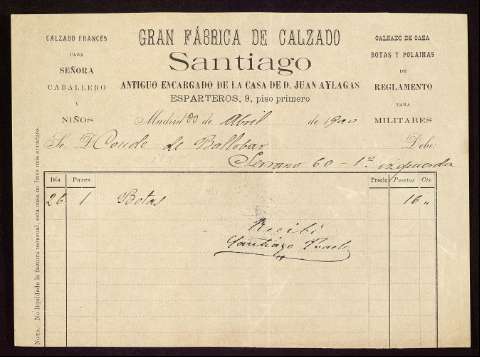 CALZADO FRANCÉS
PARA
SEÑORA
CABALLERO
Y
NIÑOS
GRAN FÁBRICA DE CALZADO
Santiago
ANTIGUO ENCARGADO DE LA CASA DE D. JUAN AYLAGAS
ESPARTEROS, 9, piso primero
CALZADO DE CAZA
BOTAS Y POLAINAS
DE
REGLAMENTO
PARA
MILITARES
Madrid 30 de Abril de 1900
Sr. D Conde de Ballobar Debe:
Serrano 60 - 1º izquierda
Día Pares Precio Pesetas Cts
26 1 Botas 16 "
Recibí
Santiago
Nota: No liquidada la factura mensual, esta casa no fía